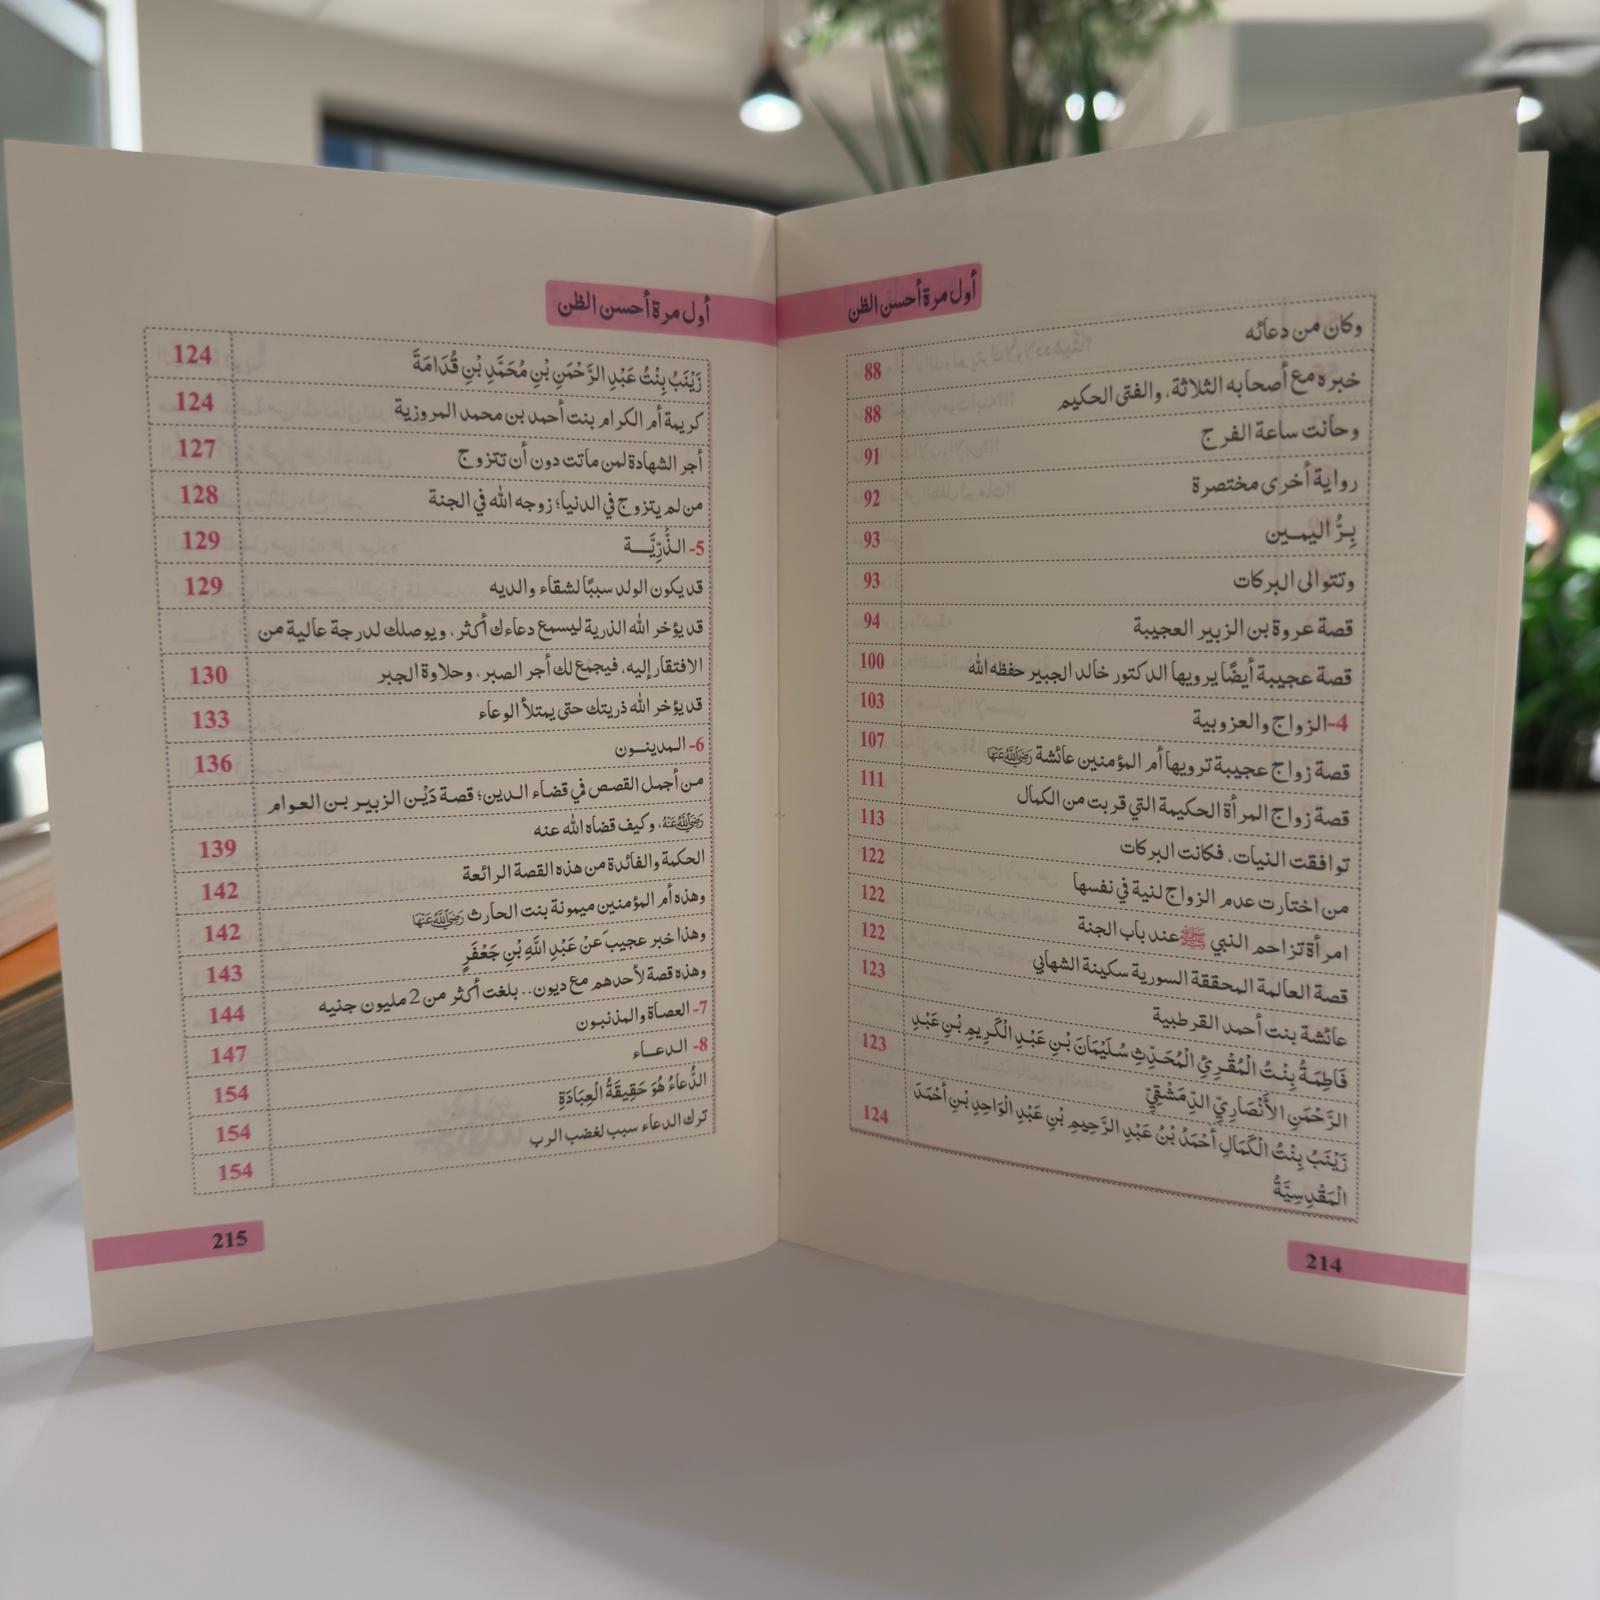 أول مرة أحسن الظن
وكان من دعائه 88
خبره مع أصحابه الثلاثة، والفتى الحكيم 88
وحانت ساعة الفرج 91
رواية أخرى مختصرة 92
بِرُّ اليمـــين 93
وتتوالى البركات 93
قصة عروة بن الزبير العجيبة 94
قصة عجيبة أيضًا يرويها الدكتور خالد الجبير حفظه الله 100
4-الزواج والعزوبية 103
قصة زواج عجيبة ترويها أم المؤمنين عائشة رَضِيَاللَّهُعَنْهَا 107
قصة زواج المرأة الحكيمة التي قربت من الكمال 111
توافقت النيات، فكانت البركات 113
من اختارت عدم الزواج لنية في نفسها 122
امرأة تزاحم النبي ﷺ عند باب الجنة 122
قصة العالمة المحققة السورية سكينة الشهابي 122
عائشة بنت أحمد القرطبية 123
فَاطِمَةُ بِنْتُ الْمُقْرِئِ الْمُحَدِّثِ سُلَيْمَانَ بْنِ عَبْدِ الْكَرِيمِ بْنِ عَبْدِ
الرَّحْمَنِ الْأَنْصَارِيِّ الدِّمَشْقِيِّ 123
زَيْنَبُ بِنْتُ الْكَمَالِ أَحْمَدُ بْنُ عَبْدِ الرَّحِيمِ بْنِ عَبْدِ الْوَاحِدِ بْنِ أَحْمَدَ
الْمَقْدِسِيَّةُ 124
214
أول مرة أحسن الظن
زَيْنَبُ بِنْتُ عَبْدِ الرَّحْمَنِ بْنِ مُحَمَّدِ بْنِ قُدَامَةَ 124
كريمة أم الكرام بنت أحمد بن محمد المروزية 124
أجر الشهادة لمن ماتت دون أن تتزوج 127
من لم يتزوج في الدنيا؛ زوجه الله في الجنة 128
5- الـذُّرِّيَّـــــة 129
قد يكون الولد سببًا لشقاء والديه 129
قد يؤخر الله الذرية ليسمع دعاءك أكثر، ويوصلك لدرجة عالية من
الافتقار إليه، فيجمع لك أجر الصبر، وحلاوة الجبر 130
قد يؤخر الله ذريتك حتى يمتلأ الوعاء 133
6- المدينـــون 136
من أجمل القصص في قضاء الدين؛ قصة دَيْن الزبير بن العوام
رَضِيَاللَّهُعَنْهُ، وكيف قضاه الله عنه 139
الحكمة والفائدة من هذه القصة الرائعة 142
وهذه أم المؤمنين ميمونة بنت الحارث رَضِيَاللَّهُعَنْهَا 142
وهذا خبر عجيب عَنْ عَبْدِ اللَّهِ بْنِ جَعْفَرٍ 143
وهذه قصة لأحدهم مع ديون.. بلغت أكثر من 2 مليون جنيه 144
7- العصاة والمذنبون 147
8- الدعـــاء 154
الدُّعَاءُ هُوَ حَقِيقَةُ الْعِبَادَةِ 154
ترك الدعاء سبب لغضب الرب 154
215